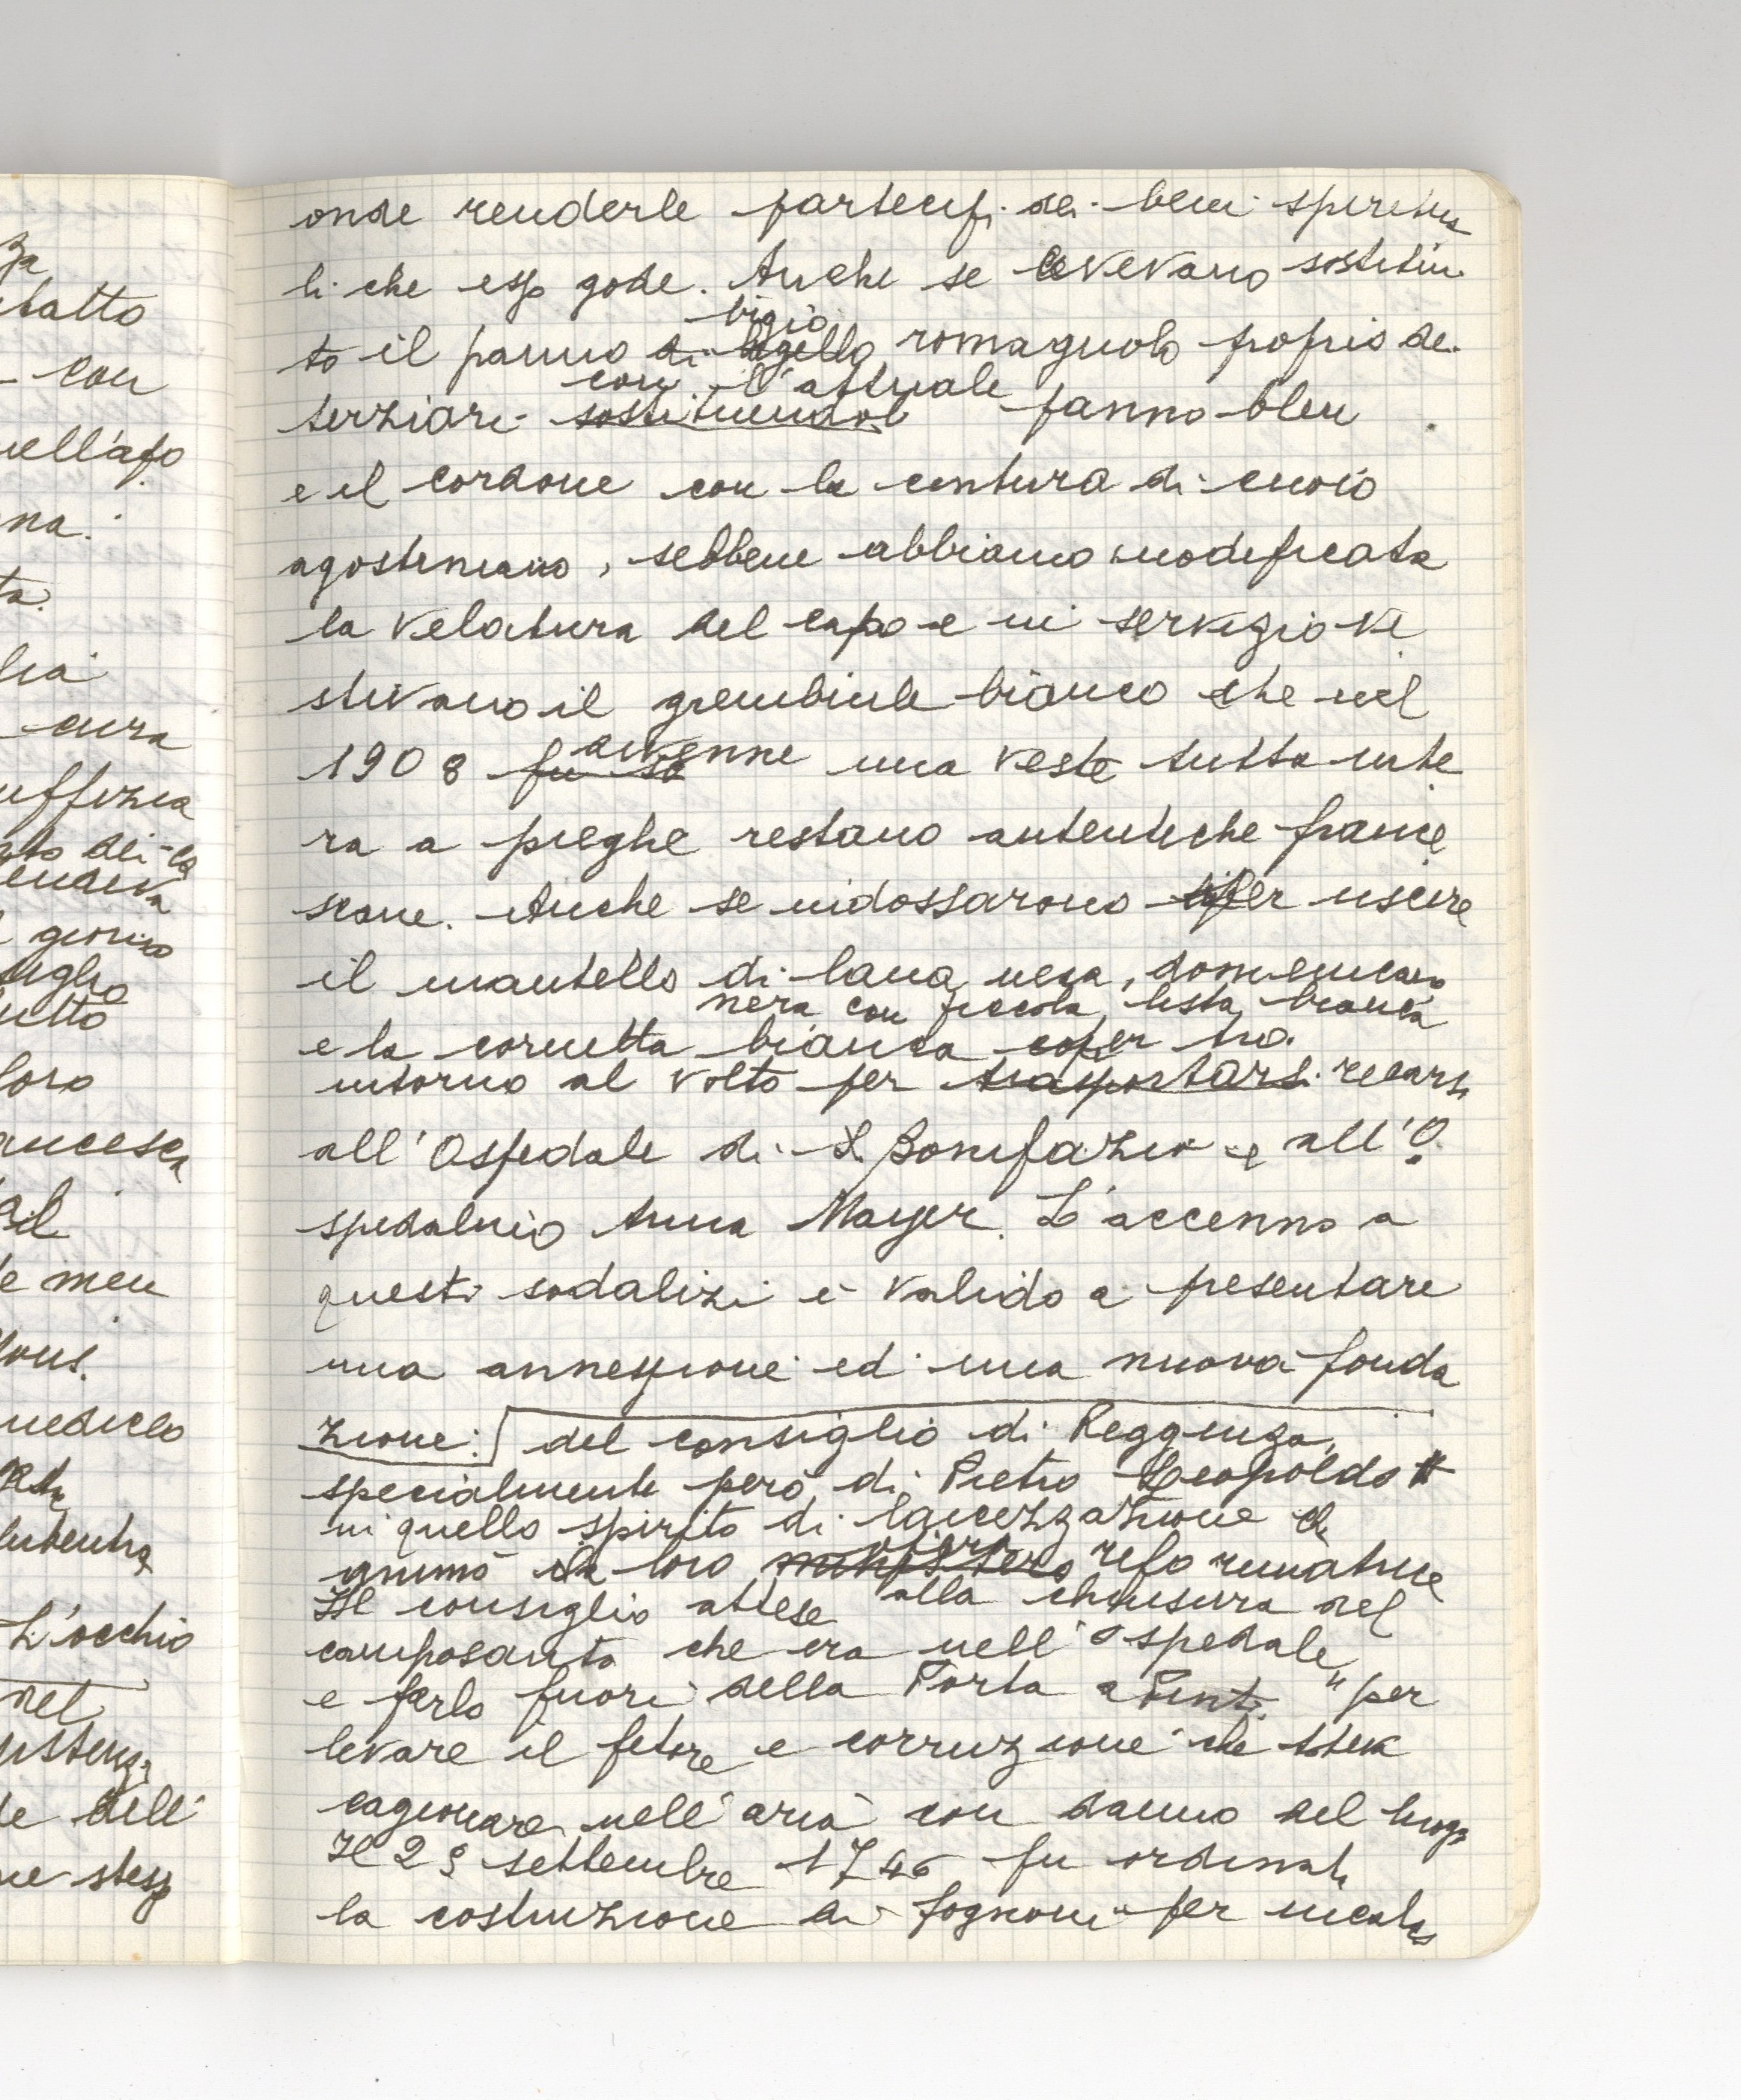 za
tatto
con
nell'apo
na.
ta.
lia
cura
uffizia
nto dei
endeva
giorno
luglio
tutto
loro
ancesca
il
e men
medico
L'occhio
del
e dell'
ne stess
onde renderle partecipi dei beni spiritua
li che esso gode. Anche se avevano sostitui
bigio
to il panno di bigello romagnolo proprio dei
con l'attuale
terziari sostituendol panno bleu
e il cordone con la centura di cuoio
agostiniano, sebbene abbiano modificata
la velatura del capo e in servizio ve
stivano il grembiule bianco che nel
avvenne
1908 fu so una veste tutta inte
ra a pieghe restano autentiche france
scane. Anche se indossarono per uscire
il mantello di lana nera, domenicano
nera con piccola lista bianca
e la cornetta bianca coper tra
intorno al volto per trasportarsi recarsi
all'Ospedale di S. Bonifazio e all'O
spedalino Anna Mayer. L'accenno a
questi sodalizi è valido a presentare
una annessione ed una nuova fonda
zione: del consiglio di Reggenza,
specialmente però di Pietro Leopoldo
in quello spirito di laicizzazione che
opera
animò la loro ministero reformatrice
Il consiglio attese alla chiusura del
camposanto che era nell'ospedale
e farlo fuori della Porta a Pinti "per
levare il fetore e corruzione che
cagionare nell'aria con danno del luogo
Il 29 settembre 1746 fu ordinata
la costruzione di fognoni per